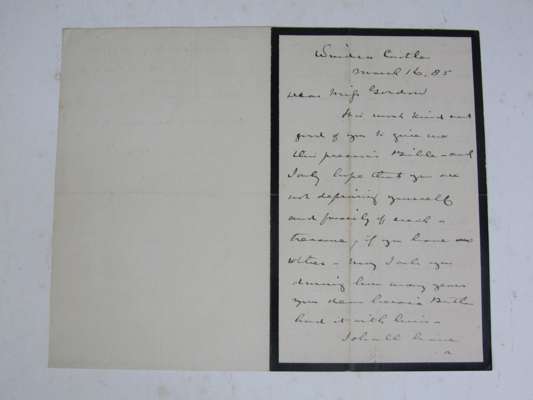 Windsor Castle
March 16. 85
Dear Miss Gordon
It is most kind and
good of you to give me
this precious Bible - and
I only hope that you are
not depriving yourself
and family of such a
treasure, if you have no
other - May I ask you
during how many years
your dear heroic Brother
had it with him -
I shall have
a